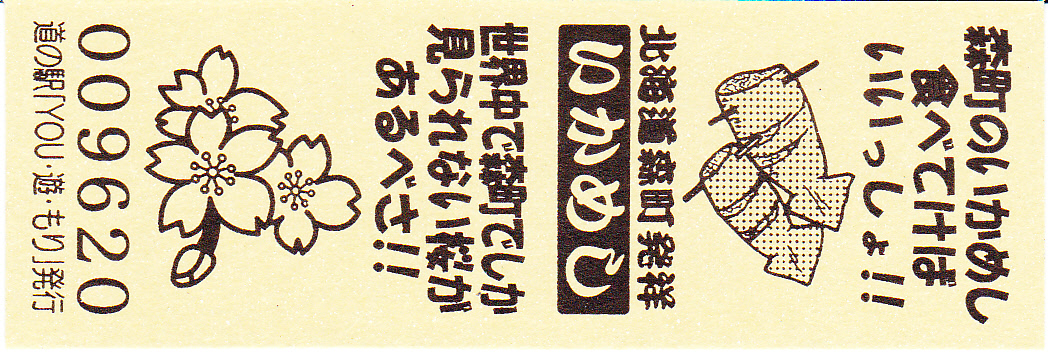 森町のいかめし
食べてけば
いいっしょ!!
北海道森町 発祥
いかめし
世界中で森町でしか
見られない桜が
あるべさ!!
009620
道の駅「YOU・遊・もり」発行